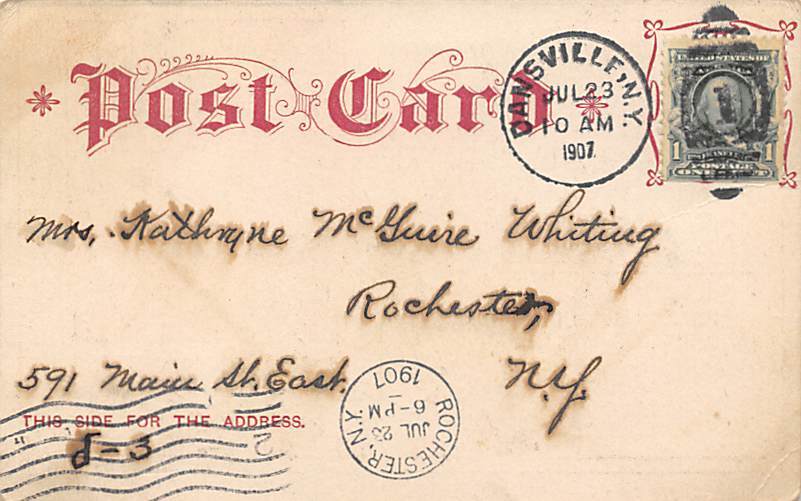 Post Card
DANSVILLE, N.Y.
JUL 23
10 AM
1907
UNITED STATES OF
AMERICA
1 1
POSTAGE
ONE CENT
Mrs. Kathryne McGuire Whiting
Rochester,
591 Main St. East. N.Y.
THIS SIDE FOR THE ADDRESS.
8-3
2
ROCHESTER, N.Y.
JUL 23
6-PM
1907